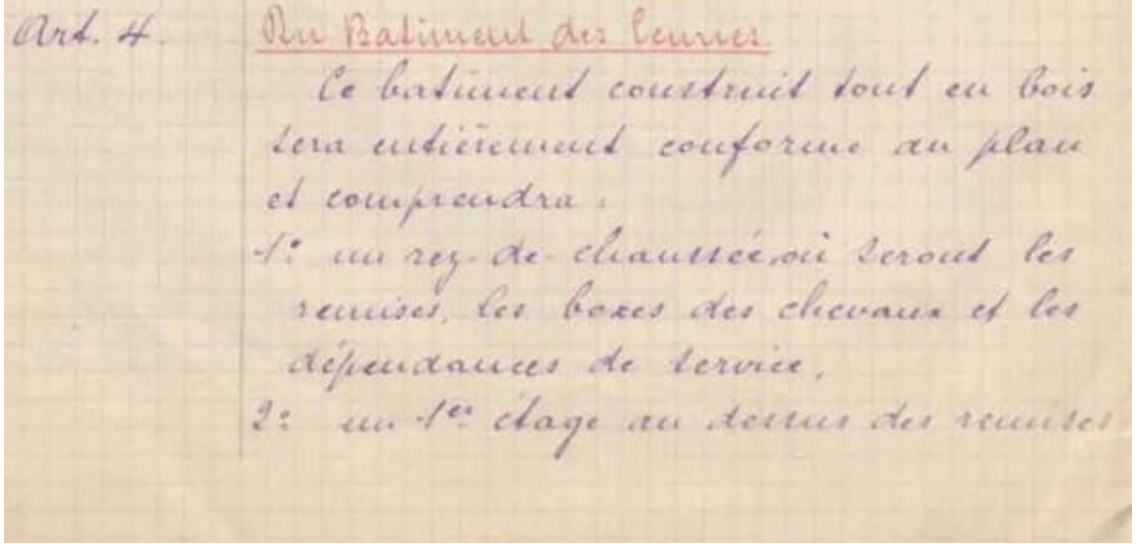 Art. 4. Du Batiment des Ecuries
Ce batiment construit tout en bois
sera entièrement conforme au plan
et comprendra :
1º un rez-de-chaussée, où seront les
remises, les boxes des chevaux et les
dépendances de service.
2º un 1er étage au dessus des remises